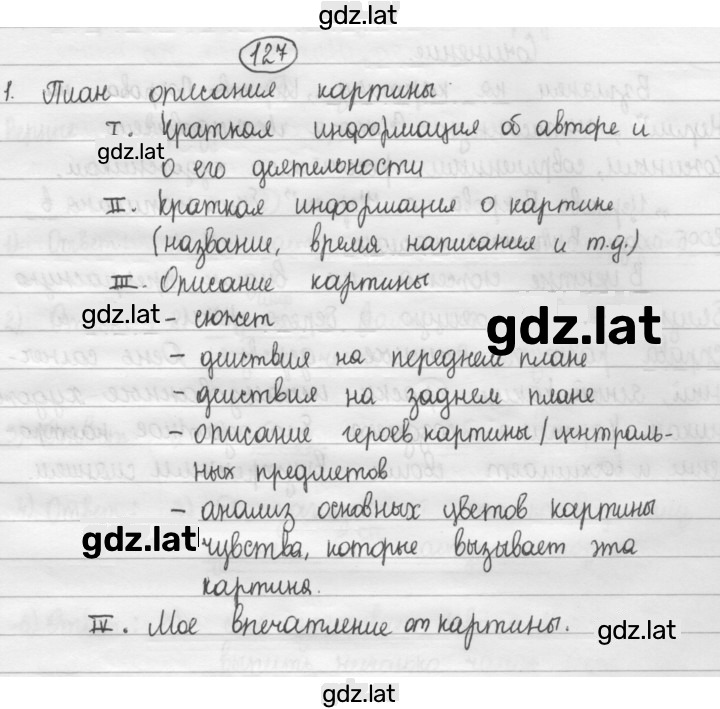 gdz.lat
127
1. План описания картины
I. Краткая информация об авторе и
gdz.lat
о его деятельности
II. Краткая информация о картине
(название, время написания и т.д.)
III. Описание картины
gdz.lat
- сюжет
gdz.lat
- действия на переднем плане
- действия на заднем плане
- описание героев картины / централь-
ных предметов
- анализ основных цветов картины
gdz.lat
чувства, которые вызывает эта
картина.
IV. Мое впечатление от картины.
gdz.lat
gdz.lat